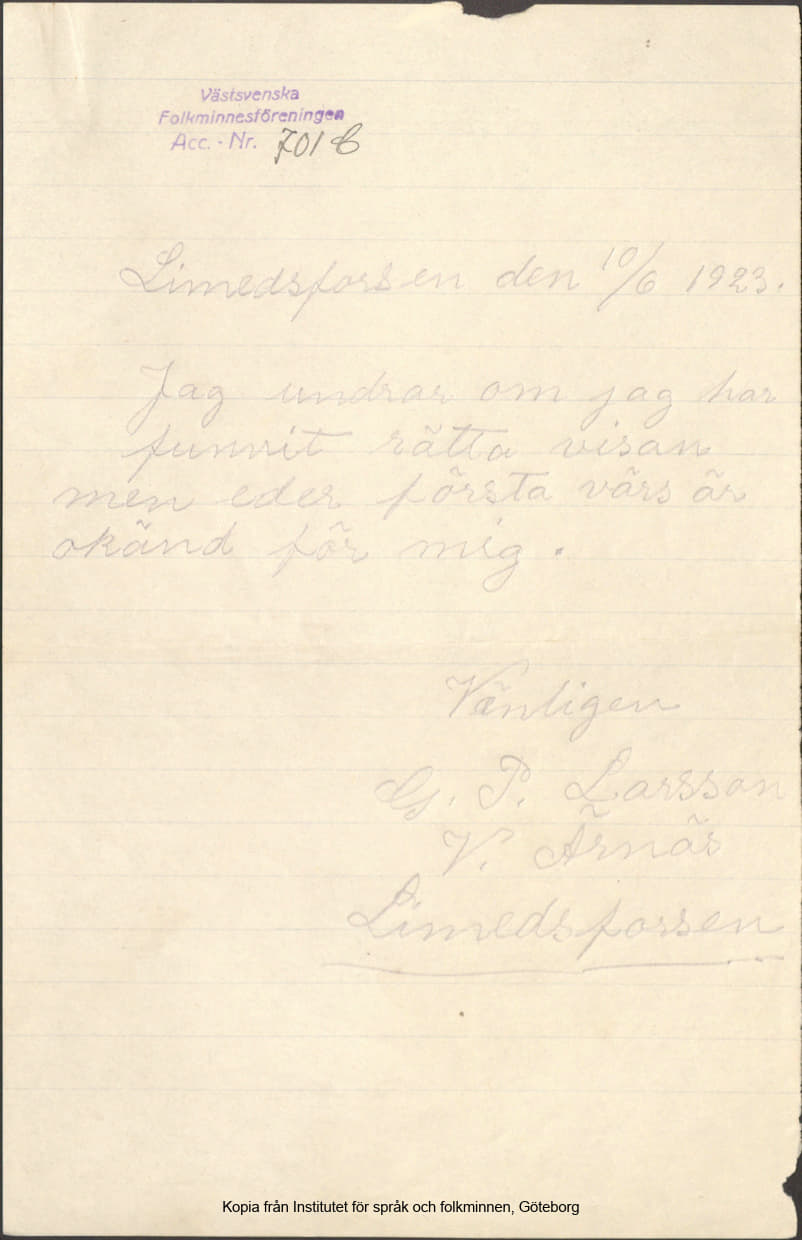 Västsvenska
Folkminnesföreningen
Acc. - Nr. 701 C
Limedsforsen den 10/6 1923.
Jag undrar om jag har
funnit rätta visan
men eder första värs är
okänd för mig.
Vänligen
G. P. Larsson
V. Ärnäs
Limedsforsen
Kopia från Institutet för språk och folkminnen, Göteborg